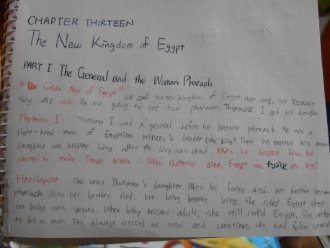 CHAPTER THIRTEEN
The New Kingdom of Egypt
PART I The General and the Woman Pharaoh
"Golden Age of Egypt" we call the new kingdom of Egypt that way, because
they are rich. We are going to see two pharaohs, Thutmose I and his daughter
Thutmose I Thutmose I was a general before he became pharaoh. He was a
right-hand man of Egyptian leader (the king). Then he married
daughter and became king after the king was dead. then he became king, he
wanted to make Egypt bigger. When Thutmose died, Egypt was twice as big!
Hatshepsut she was Thutmose's daughter. When her father died, her brother became
pharaoh. When her brother died, her baby became king. She ruled Egypt since
her baby was young. When baby became adult, she still ruled Egypt. She
to be a man. She always dressed as man, and sometimes she had fake beard